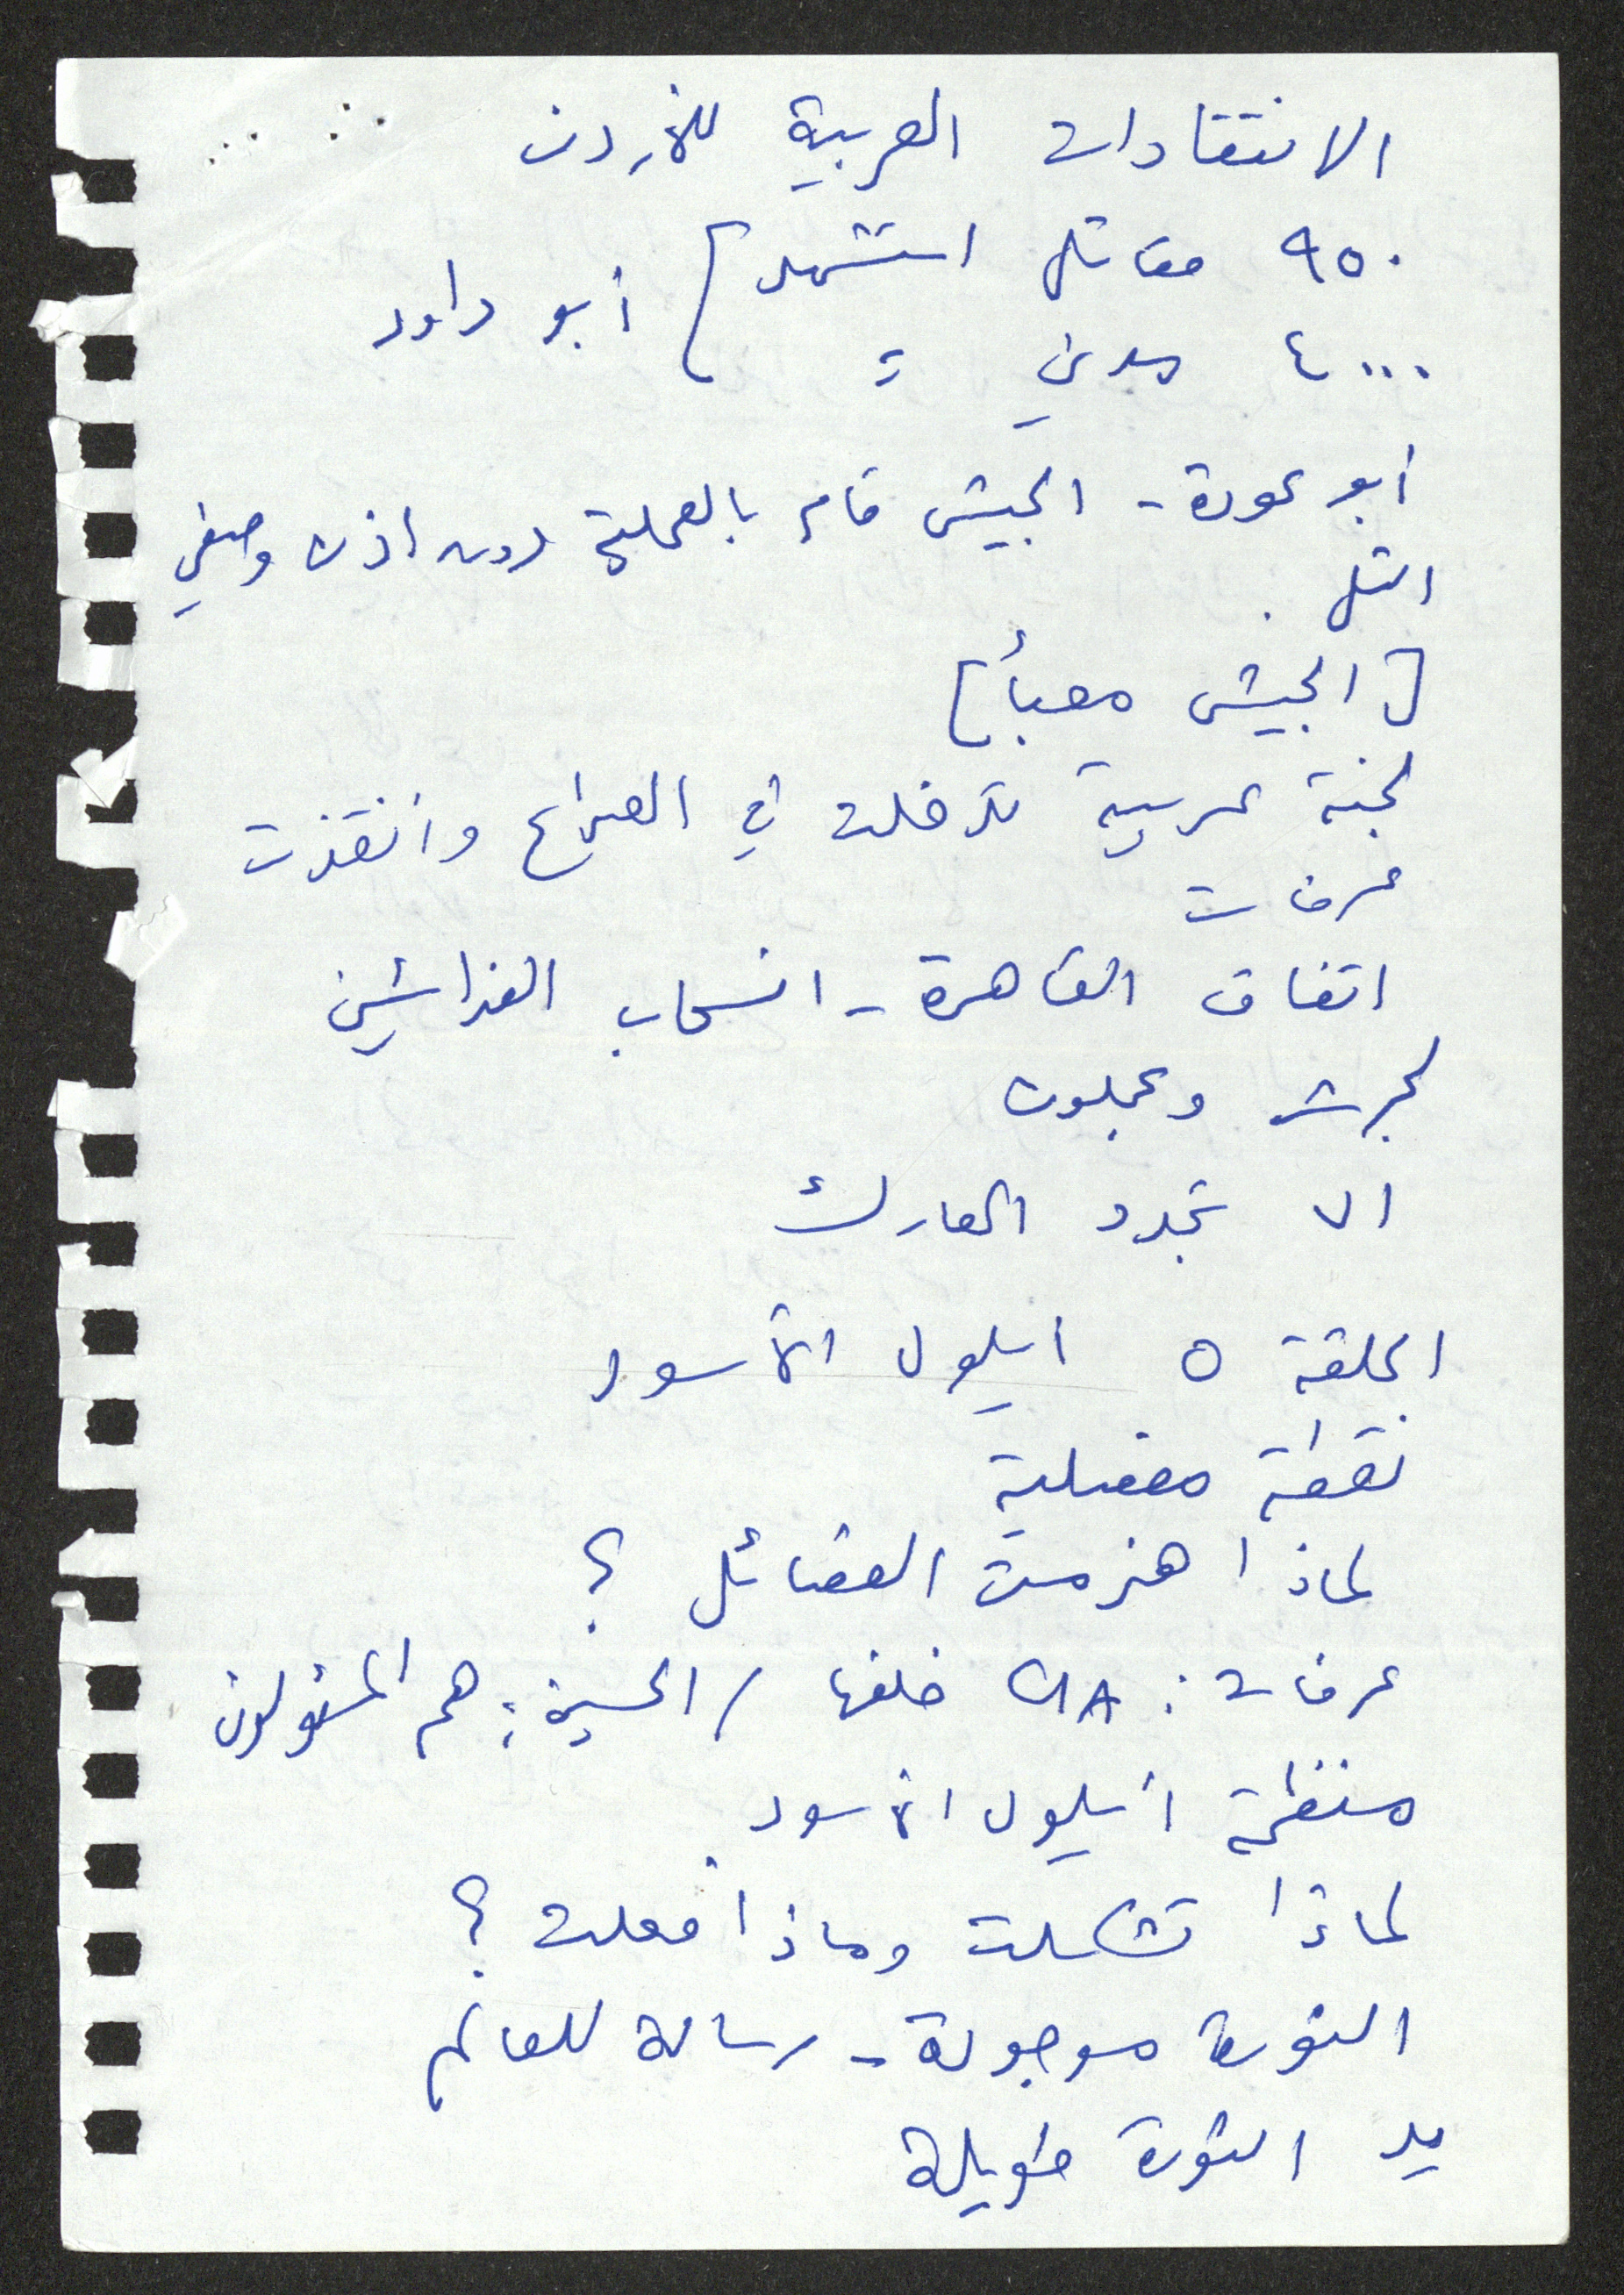 الانتقادات العربية للأردن
٩٥٠ مقاتل استشهد] أبو داود
٤٠٠٠ مدني =
أبو عودة - الجيش قام بالعملية دون اذن وصفي
التل.
[الجيش معبأ]
لجنة عربية تدخلت في الصراع وأنقذت
عرفات
اتفاق القاهرة - انسحاب الفدائيين
لجرش وعجلون
الا تجدد المعارك
الحلقة ٥ ايلول الأسود
نقطة مفصلية
لماذا هزمت الفصائل ؟
عرفات: CIA خلفها / الحسين: هم المسؤولون
منظمة أيلول الأسود.
لماذا تشكلت وماذا فعلت ؟
الثورة موجودة - رسالة للعالم
يد الثورة طويلة